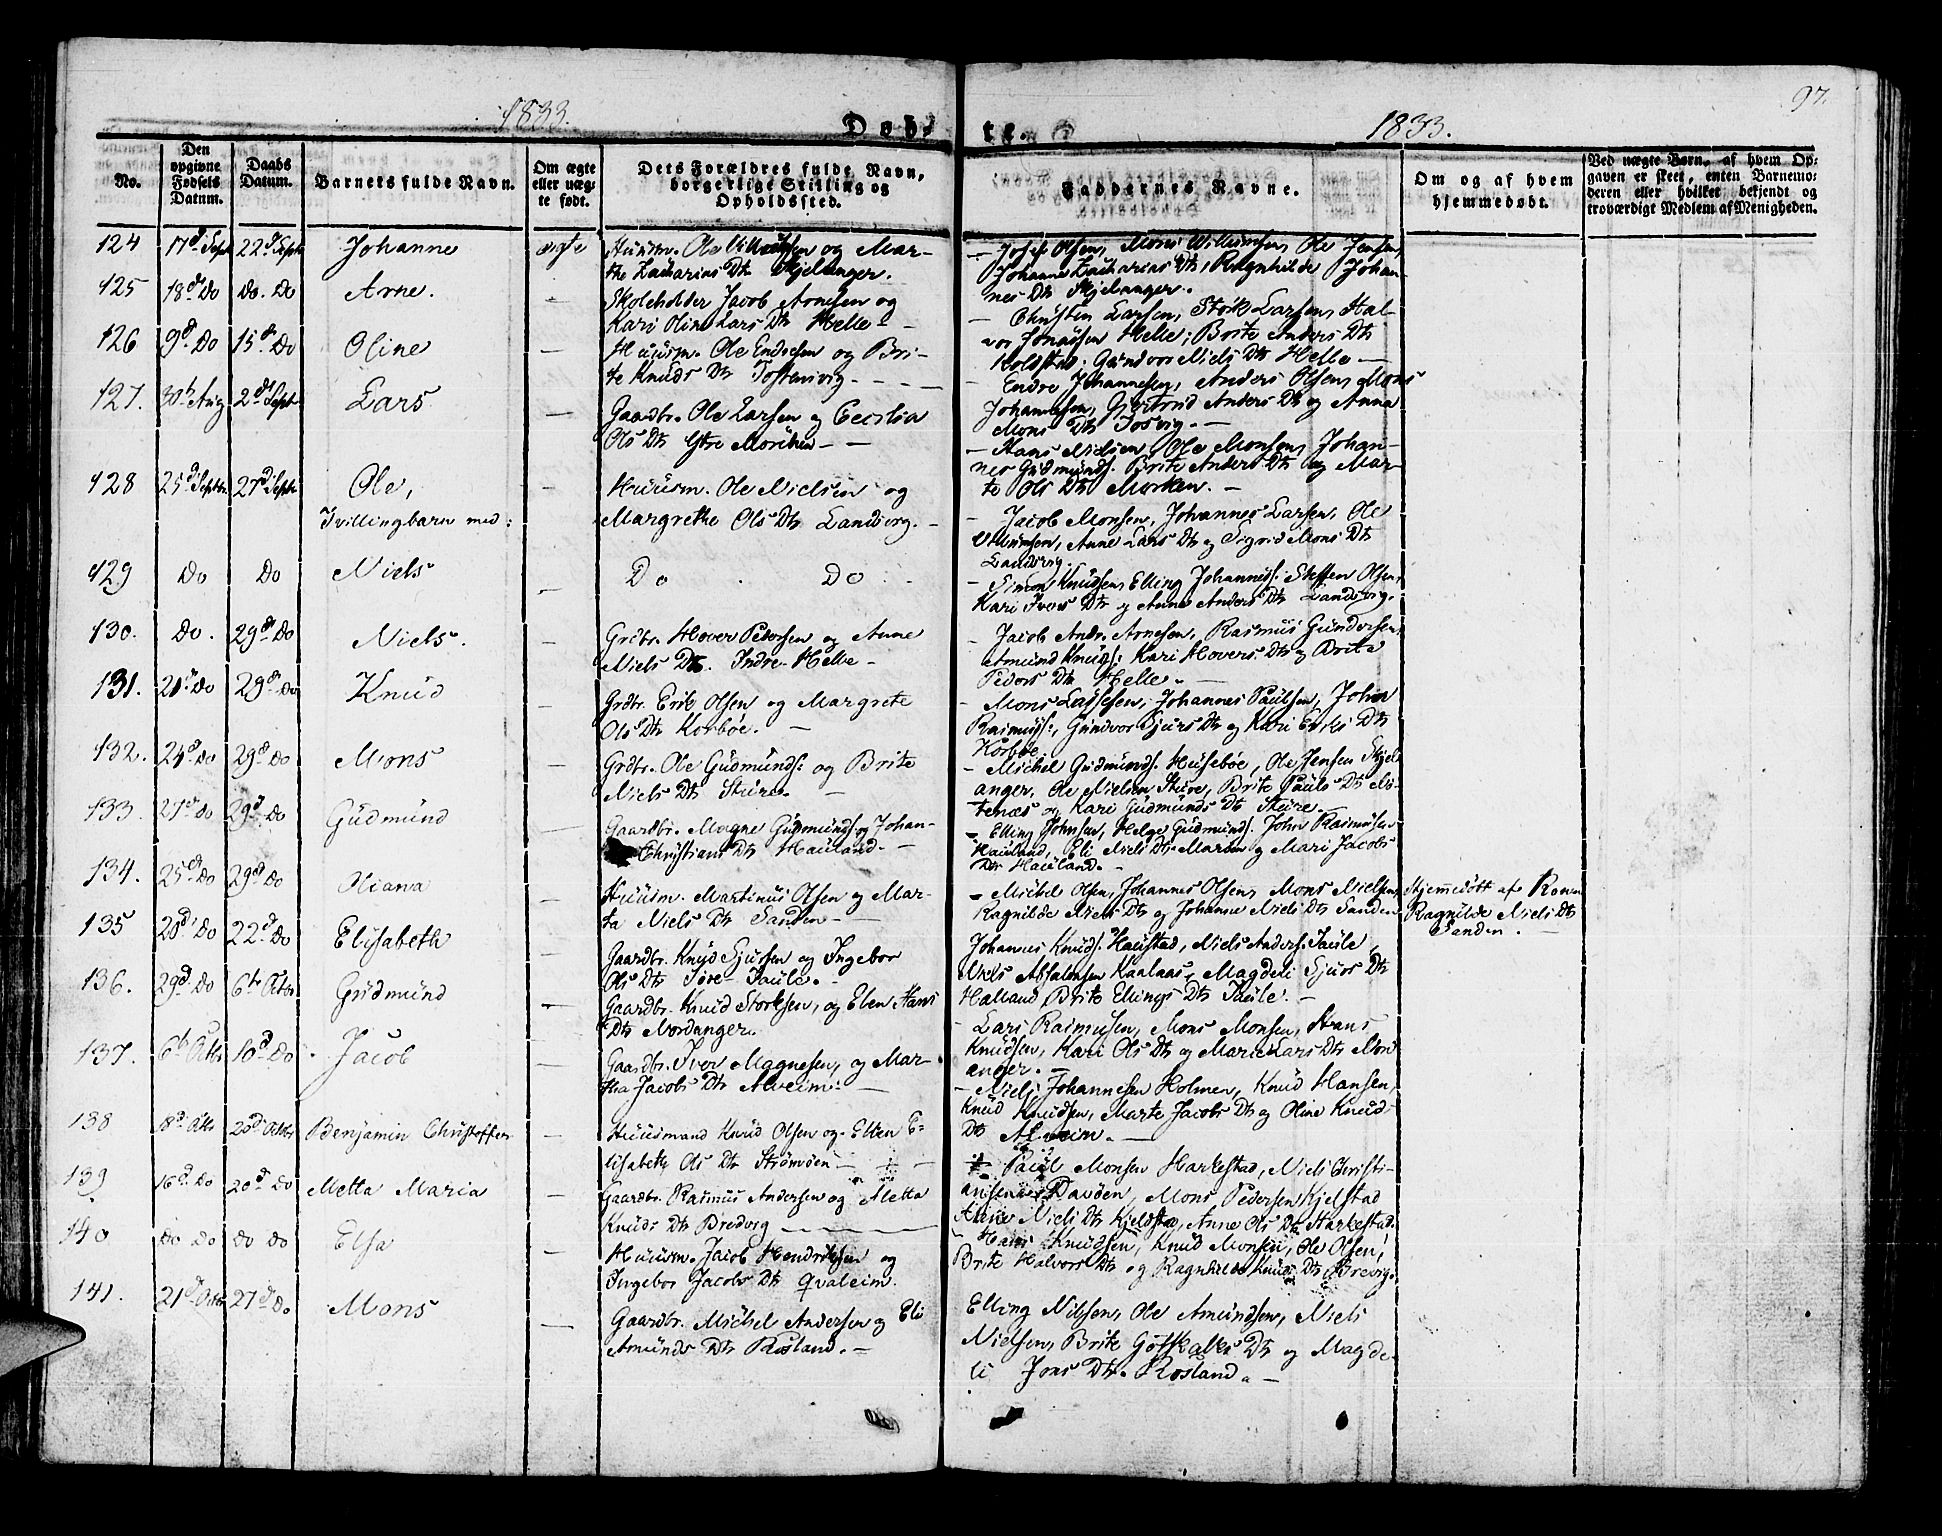 97.
1833. Døb-
te. 1833.
No.
Den opgivne Fødsels Datum.
Daabs Datum.
Barnets fulde Navn.
Om ægte eller uæg- te født.
Dets Forældres fulde Navn, borgerlige Stilling og Opholdssted.
Faddernes Navne.
Om og af hvem hjemmedøbt.
Ved uægte Børn, af hvem Op-
gaven er skeet, enten Barnemo-
deren eller hvilket bekjendt og
troværdigt Medlem af Menigheden.
124 17d Sept 22d Sept Johanne ægte Huusm. Ole Villumsen og Mar-
the Zacharias Dtr Skjelanger.
Josef Olsen, Mons Willumsen, Ole Jensen,
Johanne Zacharias Dtr, Ragnhilde Johan-
nes Dtr Skjelanger.
125 18d Do Do. Do Arne. — Skoleholder Jacob Arnesen og
Kari Oline Lars Dtr Helle
— Christen Larsen, Størk Larsen, Hal-
vor Jonassen Helle; Brite Anders Dtr
Koldstad. Gundvor Niels Dtr Helle —
126 9d Do 15d Do Oline — Huusm. Ole Endresen og Bri-
te Knuds Dtr Tostensvig.
— Endre Johannesen, Anders Olsen, Mons
Johannesen, Gjertrud Anders Dtr og Anna
Mons Dtr Tosvig. —
127. 30te Aug 2d Sept Lars — Gaardbr. Ole Larsen og Cecilia
Ols Dtr Ytre Morken —
— Hans Nielsen, Ole Monsen, Johan-
nes Gudmunds. Brite Anders Dtr og Mar-
te Ols Dtr Morken. —
128 25d Septbr 27d Septr Ole, — Huusm. Ole Nielsen og
Tvillingbarn med: Margrethe Ols Dtr Landsvig.
— Jacob Monsen, Johannes Larsen, Ole
Villumsen, Anne Lars Dtr og Sigrid Mons Dtr
Landsvig.
129 Do Do Niels — Do Do
— Simon Knudsen, Elling Johanness: Steffen Olsen,
Kari Ivers Dtr og Anne Anders Dtr Landsvig.
130. Do. 29d Do Niels. — Grdbr. Hover Pedersen og Anne
Niels Dtr. Indre Helle —
— Jacob Andr. Arnesen, Rasmus Gundersen,
Amund Knuds: Kari Hovers Dtr og Brita
Peders Dtr Helle. —
131. 21d Do 29d Do Knud — Grdbr. Erik Olsen og Margrete
Ols Dtr Korbøe. —
— Mons Lassesen, Johannes Paulsen, John
Rasmuss:, Gundvor Sjurs Dtr og Kari Eriks Dtr
Korbøe.
132. 24d Do 29d Do Mons — Grdbr. Ole Gudmunds: og Brite
Niels Dtr Sture. —
— Michel Gudmunds. Husebøe, Ole Jensen Skjel
anger, Ole Nielsen Sture, Brite Pauls Dtr Al-
tenæs og Kari Gudmunds Dtr Sture. —
133. 27d Do 29d Do Gudmund — Gaardbr. Magne Gudmunds. og Johan-
Christians Dtr Hauland. —
— Elling Johnsen, Helge Gudmunds. John Rasmusen
Hauland, Eli Niels Dtr Marøen og Mari Jacobs
Dtr Hauland. —
134. 25d Do 29d Do Oliana — Huusm. Martinus Olsen og Mar-
ta Niels Dtr Sanden —
— Michel Olsen, Johannes Olsen, Mons Nielsen,
Ragnilde Niels Dtr og Johanne Niels Dtr Sanden
Hjemmedøbt af Konen
Ragnilde Niels Dtr
Sanden. —
135 20d Do 22d Do Elisabeth — Gaardbr. Knud Sjursen og Ingebor
Ols Dtr Søre Taule. —
Johannes Knuds. Haustad, Niels Anders. Taule,
Niels Absalonsen Kaalaas, Magdeli Sjurs Dtr
Halland Brite Ellings Dtr Taule. —
136. 29d Do 6te Octbr Gudmund — Gaardbr. Knud Størksen, og Elen Hans
Dtr Nordanger.
— Lars Rasmusen, Mons Monsen, Hans
Knudsen, Kari Ols Dtr og Marie Lars Dtr Nor
anger. —
137. 6te Octbr 10d Do Jacob — Gaardbr. Iver Magnesen, og Mar-
tha Jacobs Dtr Alveim. —
— Niels Johannesen Holmen, Knud Hansen,
Knud Knudsen, Marte Jacobs Dtr og Oline Knuds
Dtr Alveim. —
138 18d Octbr 20d Octbr Benjamin Christoffer — Huusmand Knud Olsen og Ellen E-
lisabeth Ols Dtr Strømøen —
Paul Monsen Harkestad, Niels Christi-
ansen Davøen, Mons Pedersen Kjelstad
Anne Niels Dtr Kjeldstad, Anne Ols Dtr Harkestad.
139 16d Do 20d Do Metta Maria — Gaardbr. Rasmus Andersen og Metta
Knuds Dtr Bredvig —
Hans Knudsen, Knud Monsen, Ole Olsen,
Brite Halvors Dtr og Ragnhilde Knuds Dtr Brevig.
140 Do Do Do Do Elsa — Huusm. Jacob Hendriksen og
Ingebor Jacobs Dtr Qvaleim.
141. 21d Octbr 27d Do Mons — Gaardbr. Michel Andersen og Eli
Amunds Dtr Rosland. —
Elling Nilsen, Ole Amundsen, Niels
Nielsen, Brite Gotskalks Dtr og Magde-
li Jons Dtr. Rosland. —